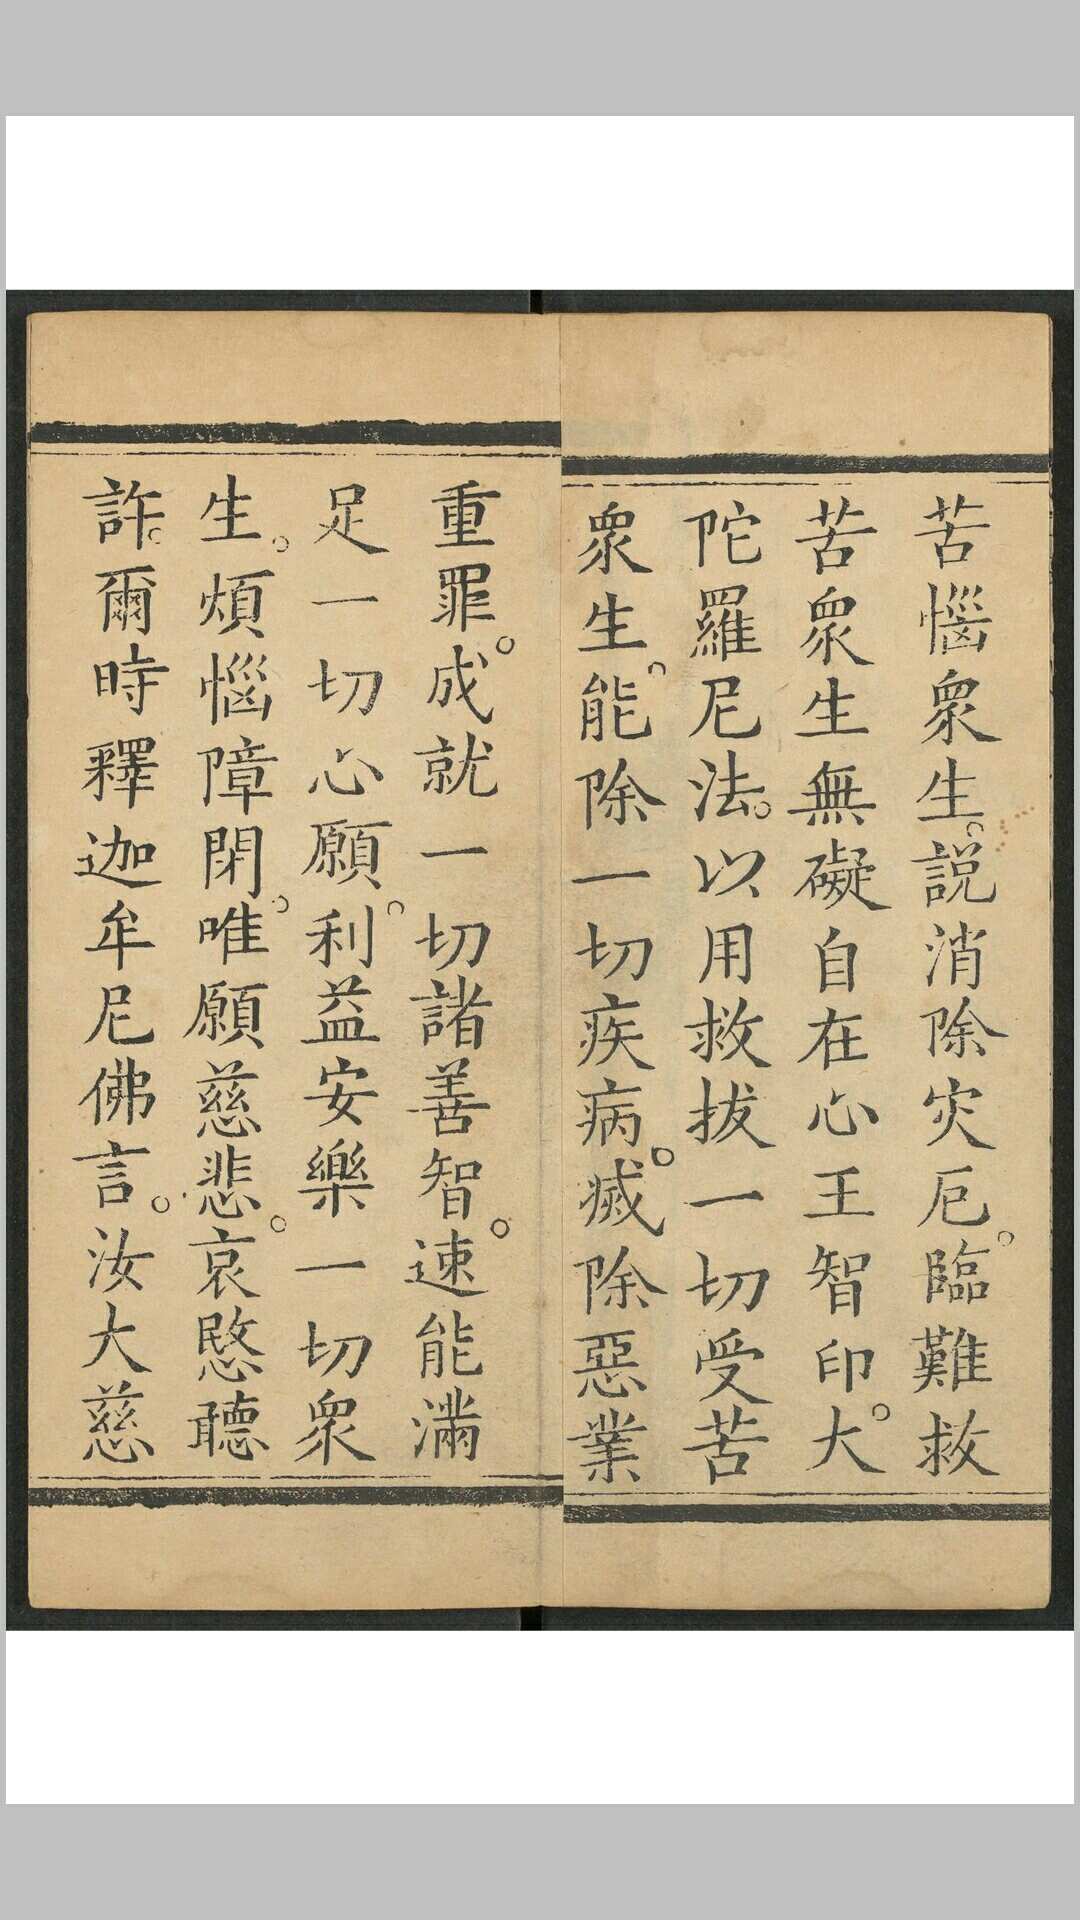 苦惱衆生。説消除灾厄。臨難救
苦衆生無礙自在心王智印。大
陀羅尼法。以用救拔一切受苦
衆生。能除一切疾病。滅除惡業
重罪。成就一切諸善智。速能滿
足一切心願。利益安樂一切衆
生。煩惱障閉。唯願慈悲。哀愍聽
許。爾時釋迦牟尼佛言。汝大慈